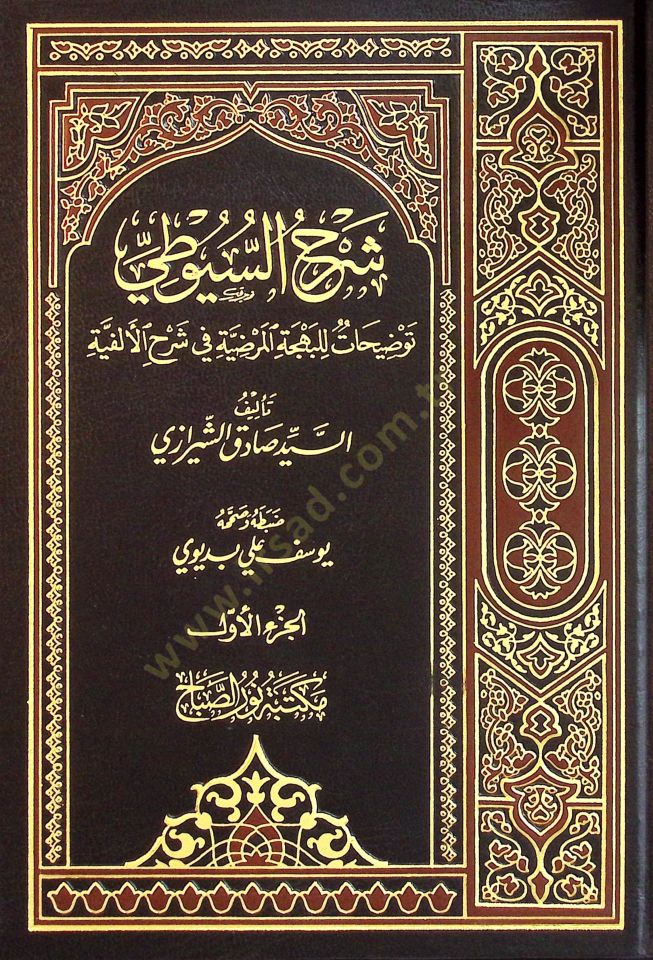 شَرْحُ السُّيُوطِيِّ
تَوْضِيحَاتٌ لِلْبَهْجَةِ الْمَرْضِيَّةِ فِي شَرْحِ الْأَلْفِيَّةِ
تَأْلِيفُ
السَّيِّد صَادِق الشِّيرَازِي
ضَبَطَهُ وَصَحَّحَهُ
يوسف علي بديوي
الجزء الأوّل
مَكتَبَة نُور الصَّبَاح